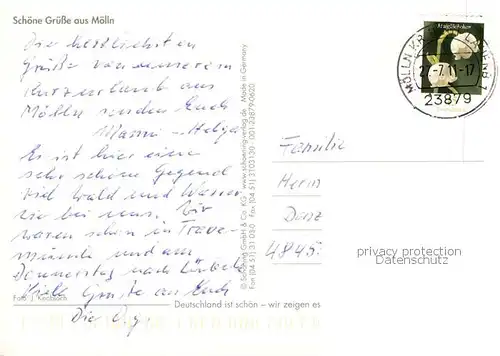 Schöne Grüße aus Mölln
Die herzlichsten
Grüße von unserem
Kurzurlaub aus
Mölln senden Euch
Manni - Helga
Es ist hier eine
sehr schöne Gegend
viel Wald und Wasser
wie bei uns. Wir
waren schon in Trave-
münde und am
Donnerstag nach Lübeck
Viele Grüße an Euch
Die
Foto: J. Kecksach
Deutschland ist schön – wir zeigen es
© Schöning GmbH & Co. KG · www.schoening-verlag.de · Made in Germany
Fon (04 51) 31 03 0 · Fax (04 51) 3103139 · 001-23879-0620
23879
Familie
Herm
Danz
4845
privacy protection
Datenschutz